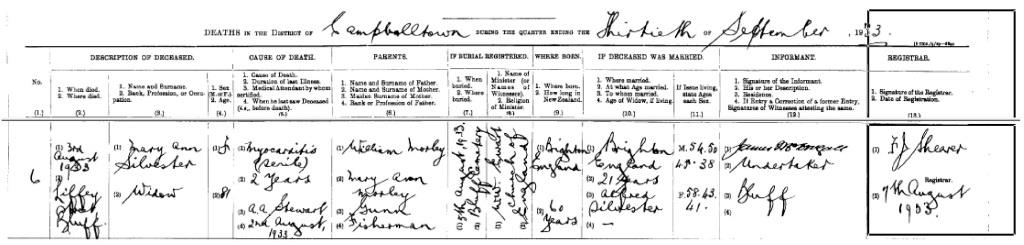 DEATHS IN THE DISTRICT OF Campbelltown DURING THE QUARTER ENDING THE Thirtieth OF September, 1933.
DESCRIPTION OF DECEASED. CAUSE OF DEATH. PARENTS. IF BURIAL REGISTERED. WHERE BORN. IF DECEASED WAS MARRIED. INFORMANT. REGISTRAR.
No.
(1.)
1. When died.
2. Where died.
(2.)
1. Name and Surname.
2. Rank, Profession, or Occupation.
(3.)
1. Sex (M. or F.).
2. Age.
(4.)
1. Cause of Death.
2. Duration of last Illness.
3. Medical Attendant by whom certified.
4. When he last saw Deceased (i.e., before death).
(5.)
1. Name and Surname of Father.
2. Name and Surname of Mother.
3. Maiden Surname of Mother.
4. Rank or Profession of Father.
(6.)
1. When buried.
2. Where buried.
(7.)
1. Name of Minister (or Names of Witnesses).
2. Religion of Minister.
(8.)
1. Where born.
2. How long in New Zealand.
(9.)
1. Where married.
2. At what Age married.
3. To whom married.
4. Age of Widow, if living.
(10.)
If Issue living, state Ages each Sex.
(11.)
1. Signature of the Informant.
2. His or her Description.
3. Residence.
4. If Entry a Correction of a former Entry, Signatures of Witnesses attesting the same.
(12.)
1. Signature of Registrar.
2. Date of Registration.
(13.)
6
(1) 3rd
August
1933
(2)
Liffey
Street
Bluff
(1) Mary Ann
Silvester
(2) Widow
(1) F
(2) 81
(1) Myocarditis
(senile)
(2) 2 Years
(3) A.A. Stewart
(4) 2nd August,
1933
(1) William Morley
(2) Mary Ann
Morley
(3) Gunn
(4) Fisherman
(1) 5th August, 1933
(2) Bluff Cemetery
(2) Church of
England
(1) Brighton
England
(2) 60
Years
(1) Brighton
England
(2) 21 Years
(3) Alfred
Silvester
(4) —
M. 54. 50
49. 38
F. 58. 43.
41.
(2) Undertaker
(3) Bluff
(4)
(1) F J Shearer
Registrar.
(2) 7th August
1933.